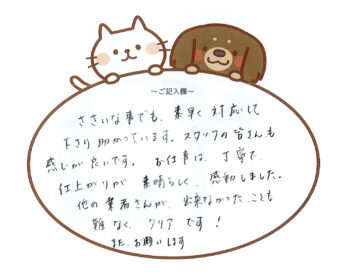 ～ご記入欄～
ささいな事でも、素早く対応して
下さり助かっています。スタッフの皆さんも
感じが良いです。お仕事は、丁寧で、
仕上がりが素晴らしく、感動しました。
他の業者さんが、出来なかったことも
難なく、クリアです！
また、お願いします